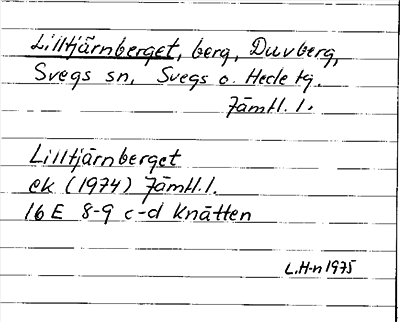 Lilltjärnberget, berg, Duvberg,
Svegs sn, Svegs o. Hede tg.
Jämtl. l.
Lilltjärnberget
ek (1974) Jämtl. l.
16 E 8-9 c-d Knätten
L.H-n 1975